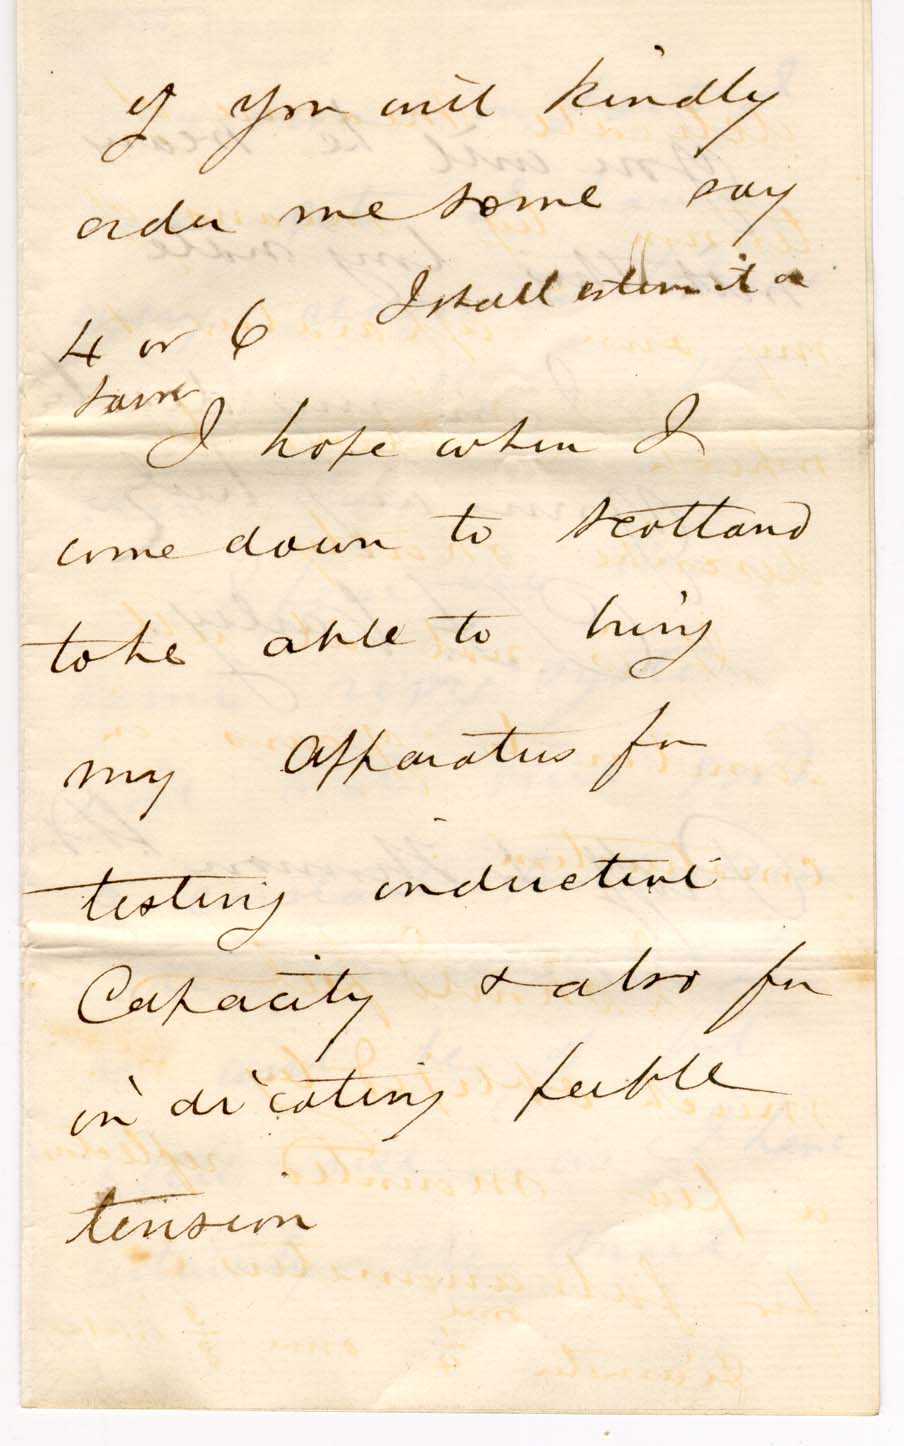 if you will kindly
order me some say
4 or 6 I shall esteem it a
favor
I hope when I
come down to Scotland
to be able to bring
my apparatus for
testing inductive
Capacity & also for
indicating feeble
tension